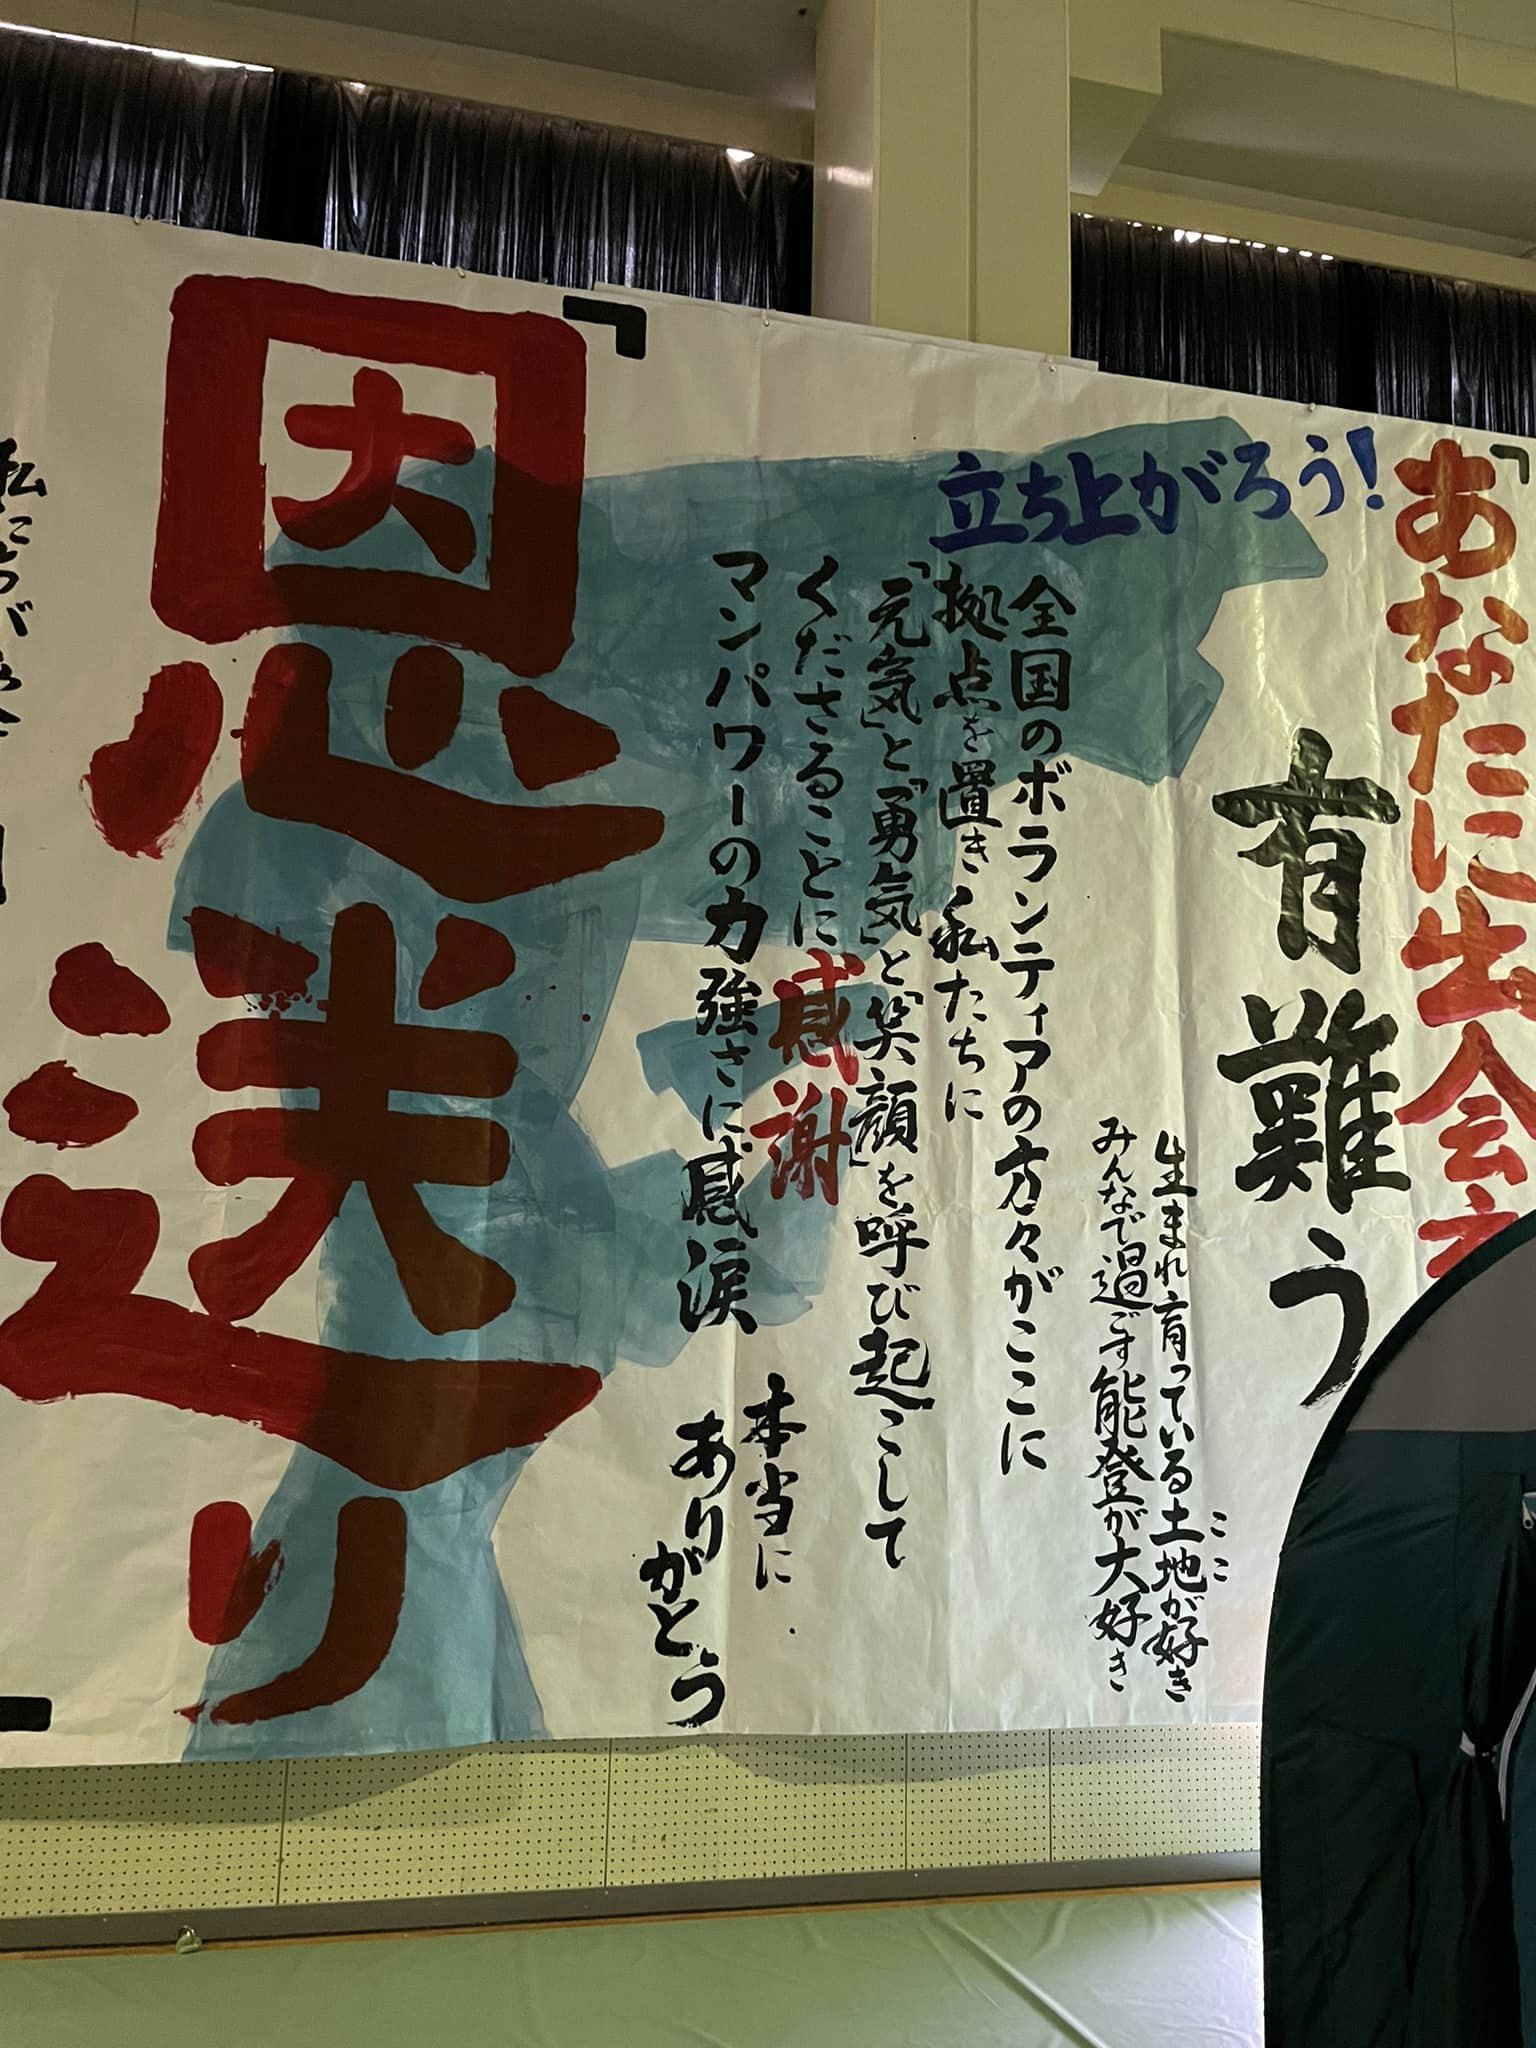 あなたに出会え
有難う
立ち上がろう!
生まれ育っている土地が好き
ここ
みんなで過ごす能登が大好き
全国のボランティアの方々がここに
拠点を置き私たちに
「元気」と「勇気」と「笑顔」を呼び起こして
くださることに感謝
マンパワーの力強さに感涙
本当に
ありがとう
「恩送り」